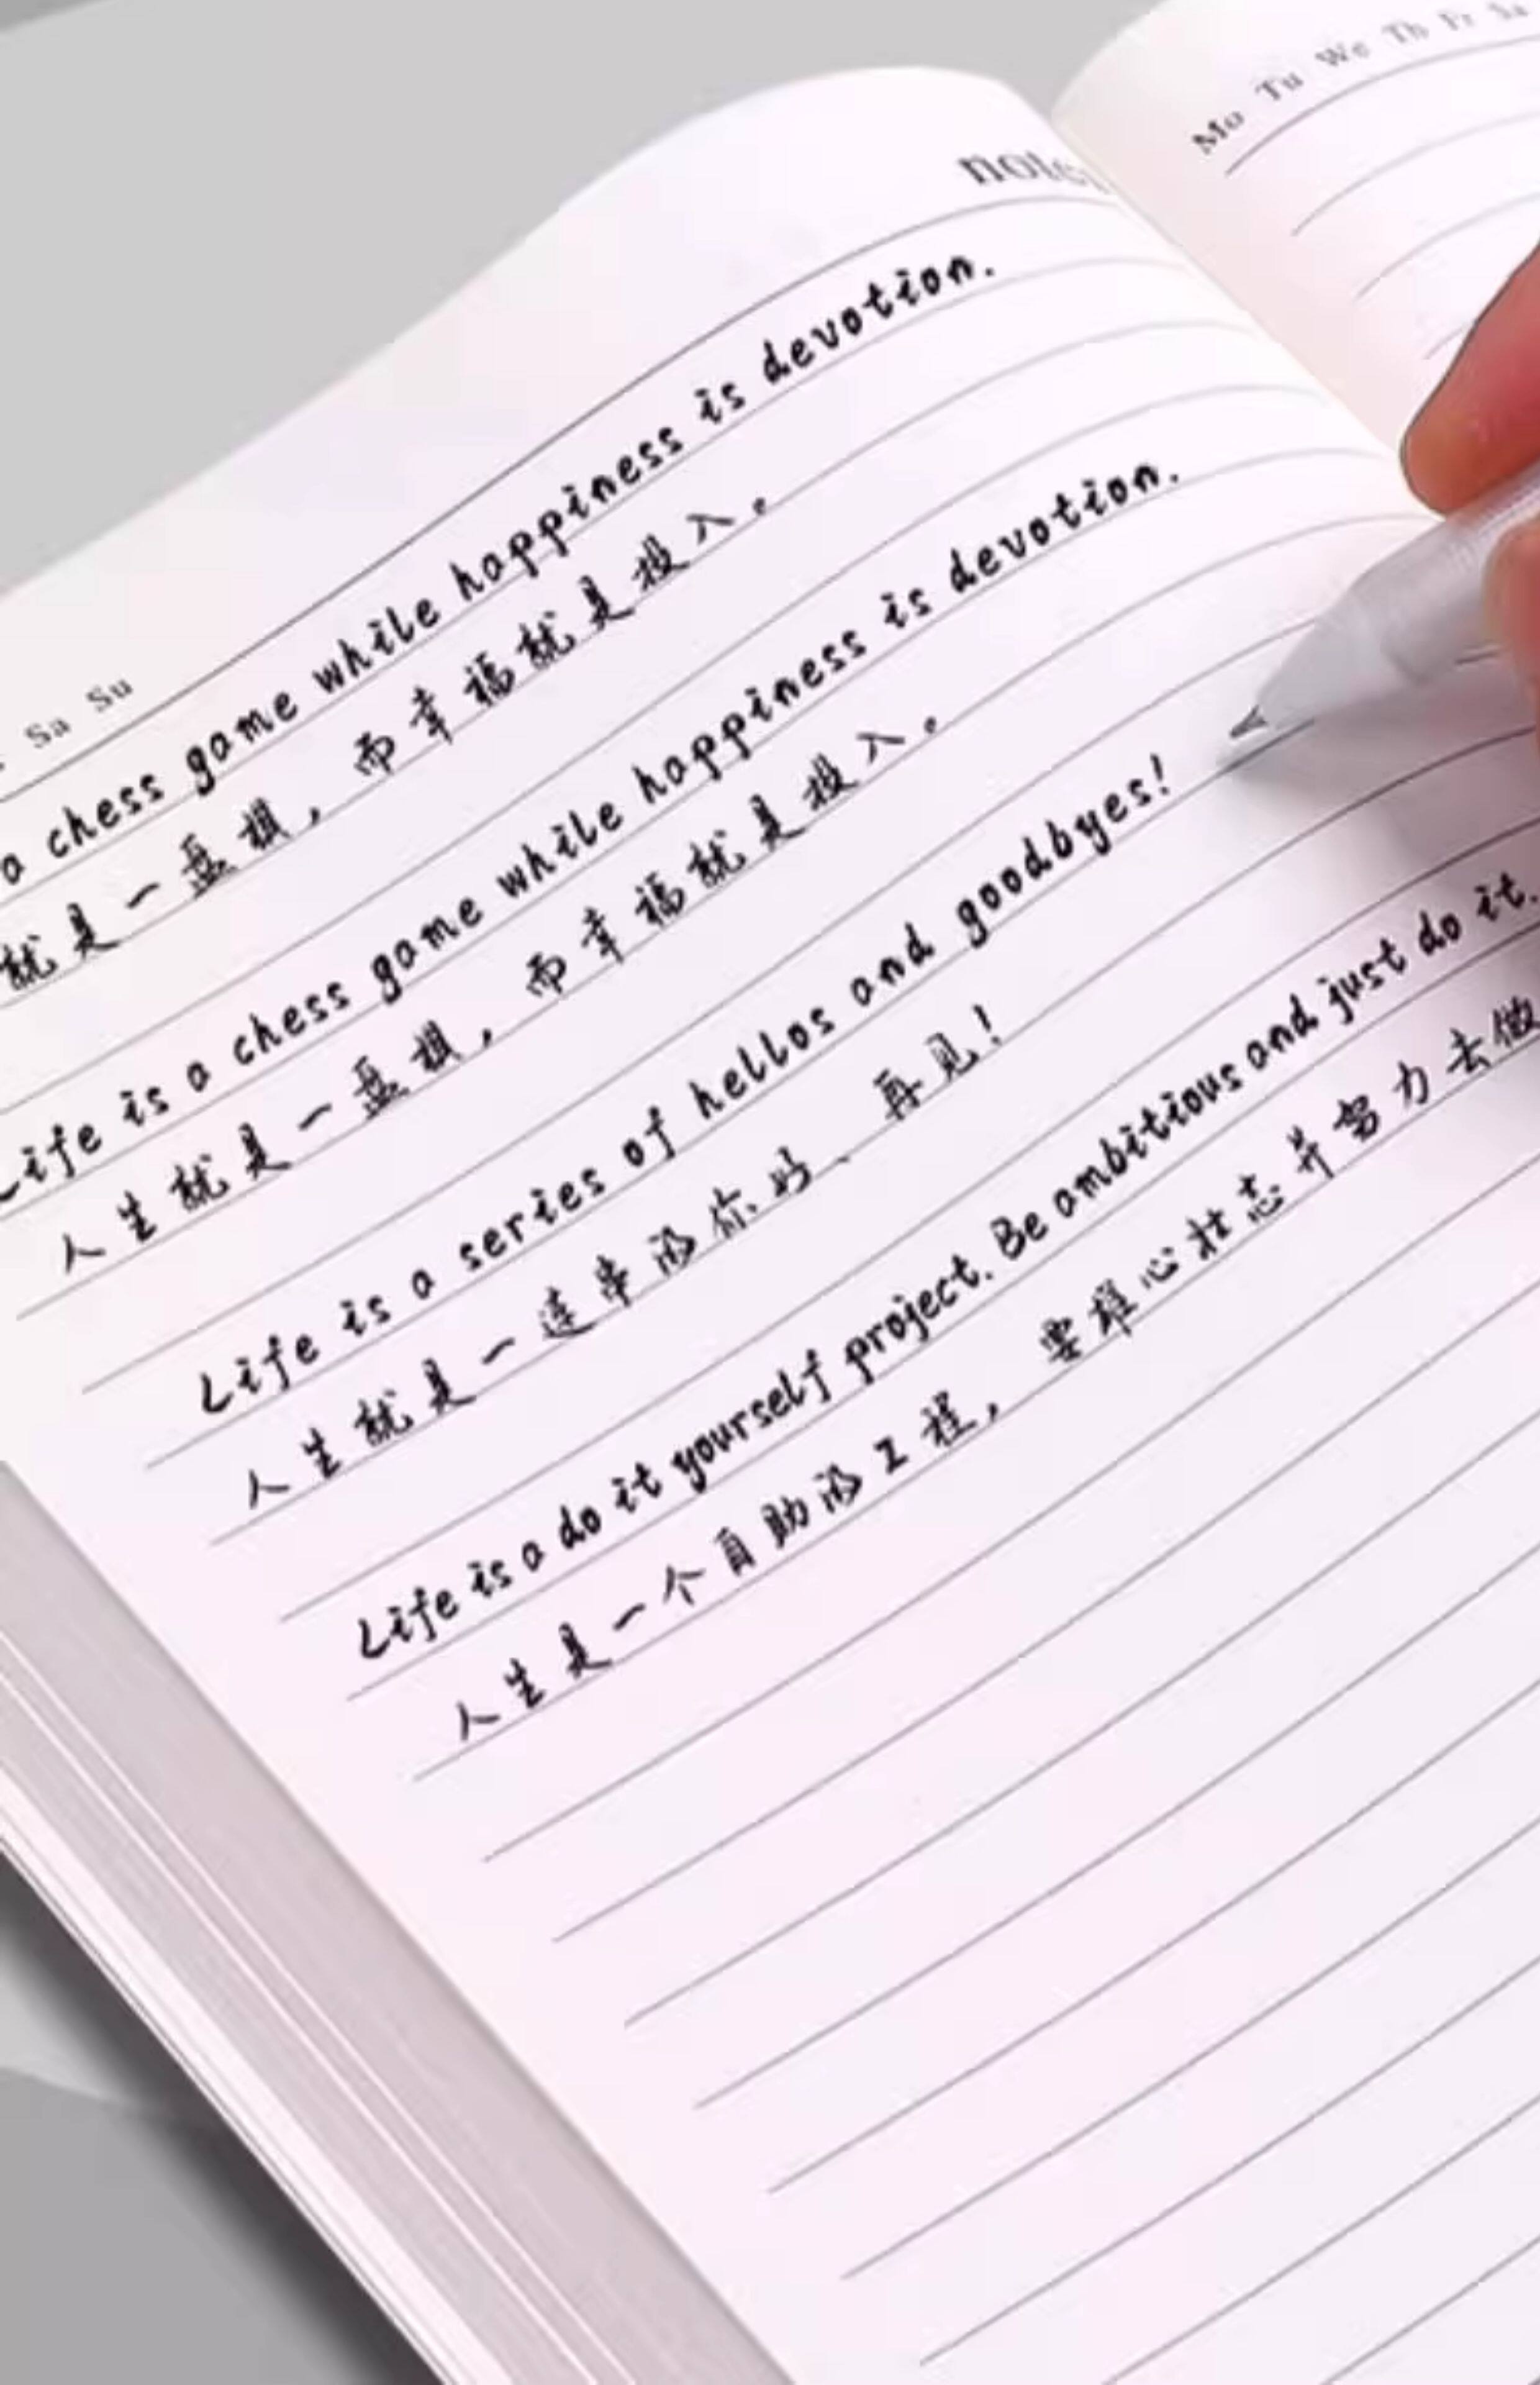 note
Mo Tu We Th Fr Sa
Sa Su
a chess game while happiness is devotion.
就是一盘棋，而幸福就是投入。
Life is a chess game while happiness is devotion.
人生就是一盘棋，而幸福就是投入。
Life is a series of hellos and goodbyes!
人生就是一连串的你好、再见！
Life is a do it yourself project. Be ambitious and just do it.
人生是一个自助的工程，要雄心壮志并努力去做